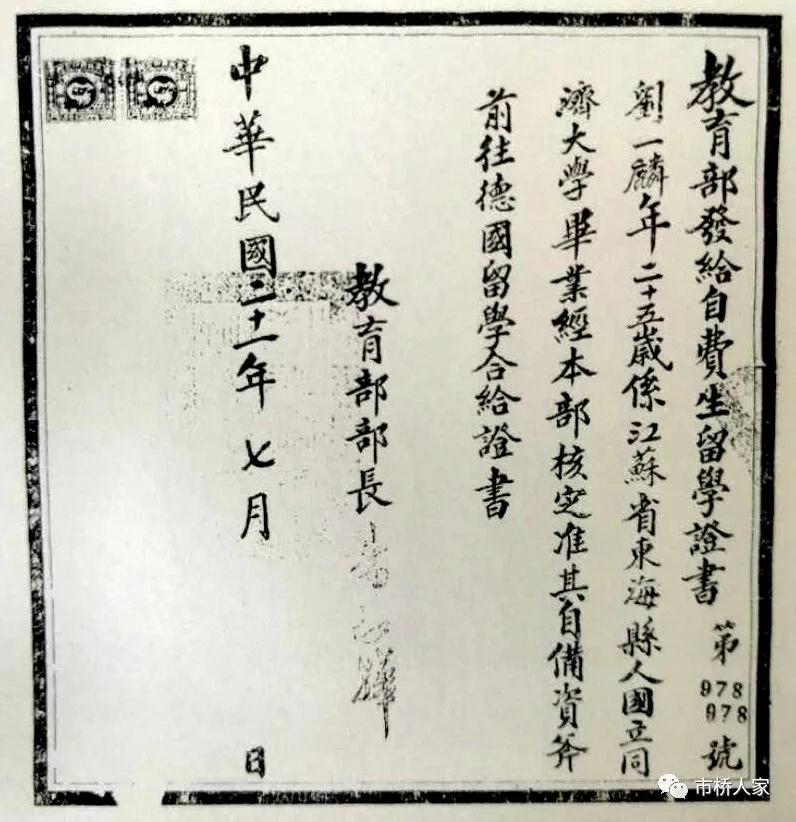 教育部發給自費生留學證書 第978 978號
劉一麟年二十五歲係江蘇省東海縣人國立同
濟大學畢業經本部核定准其自備資斧
前往德國留學合給證書
教育部部長
中華民國二十一年七月 日
市桥人家